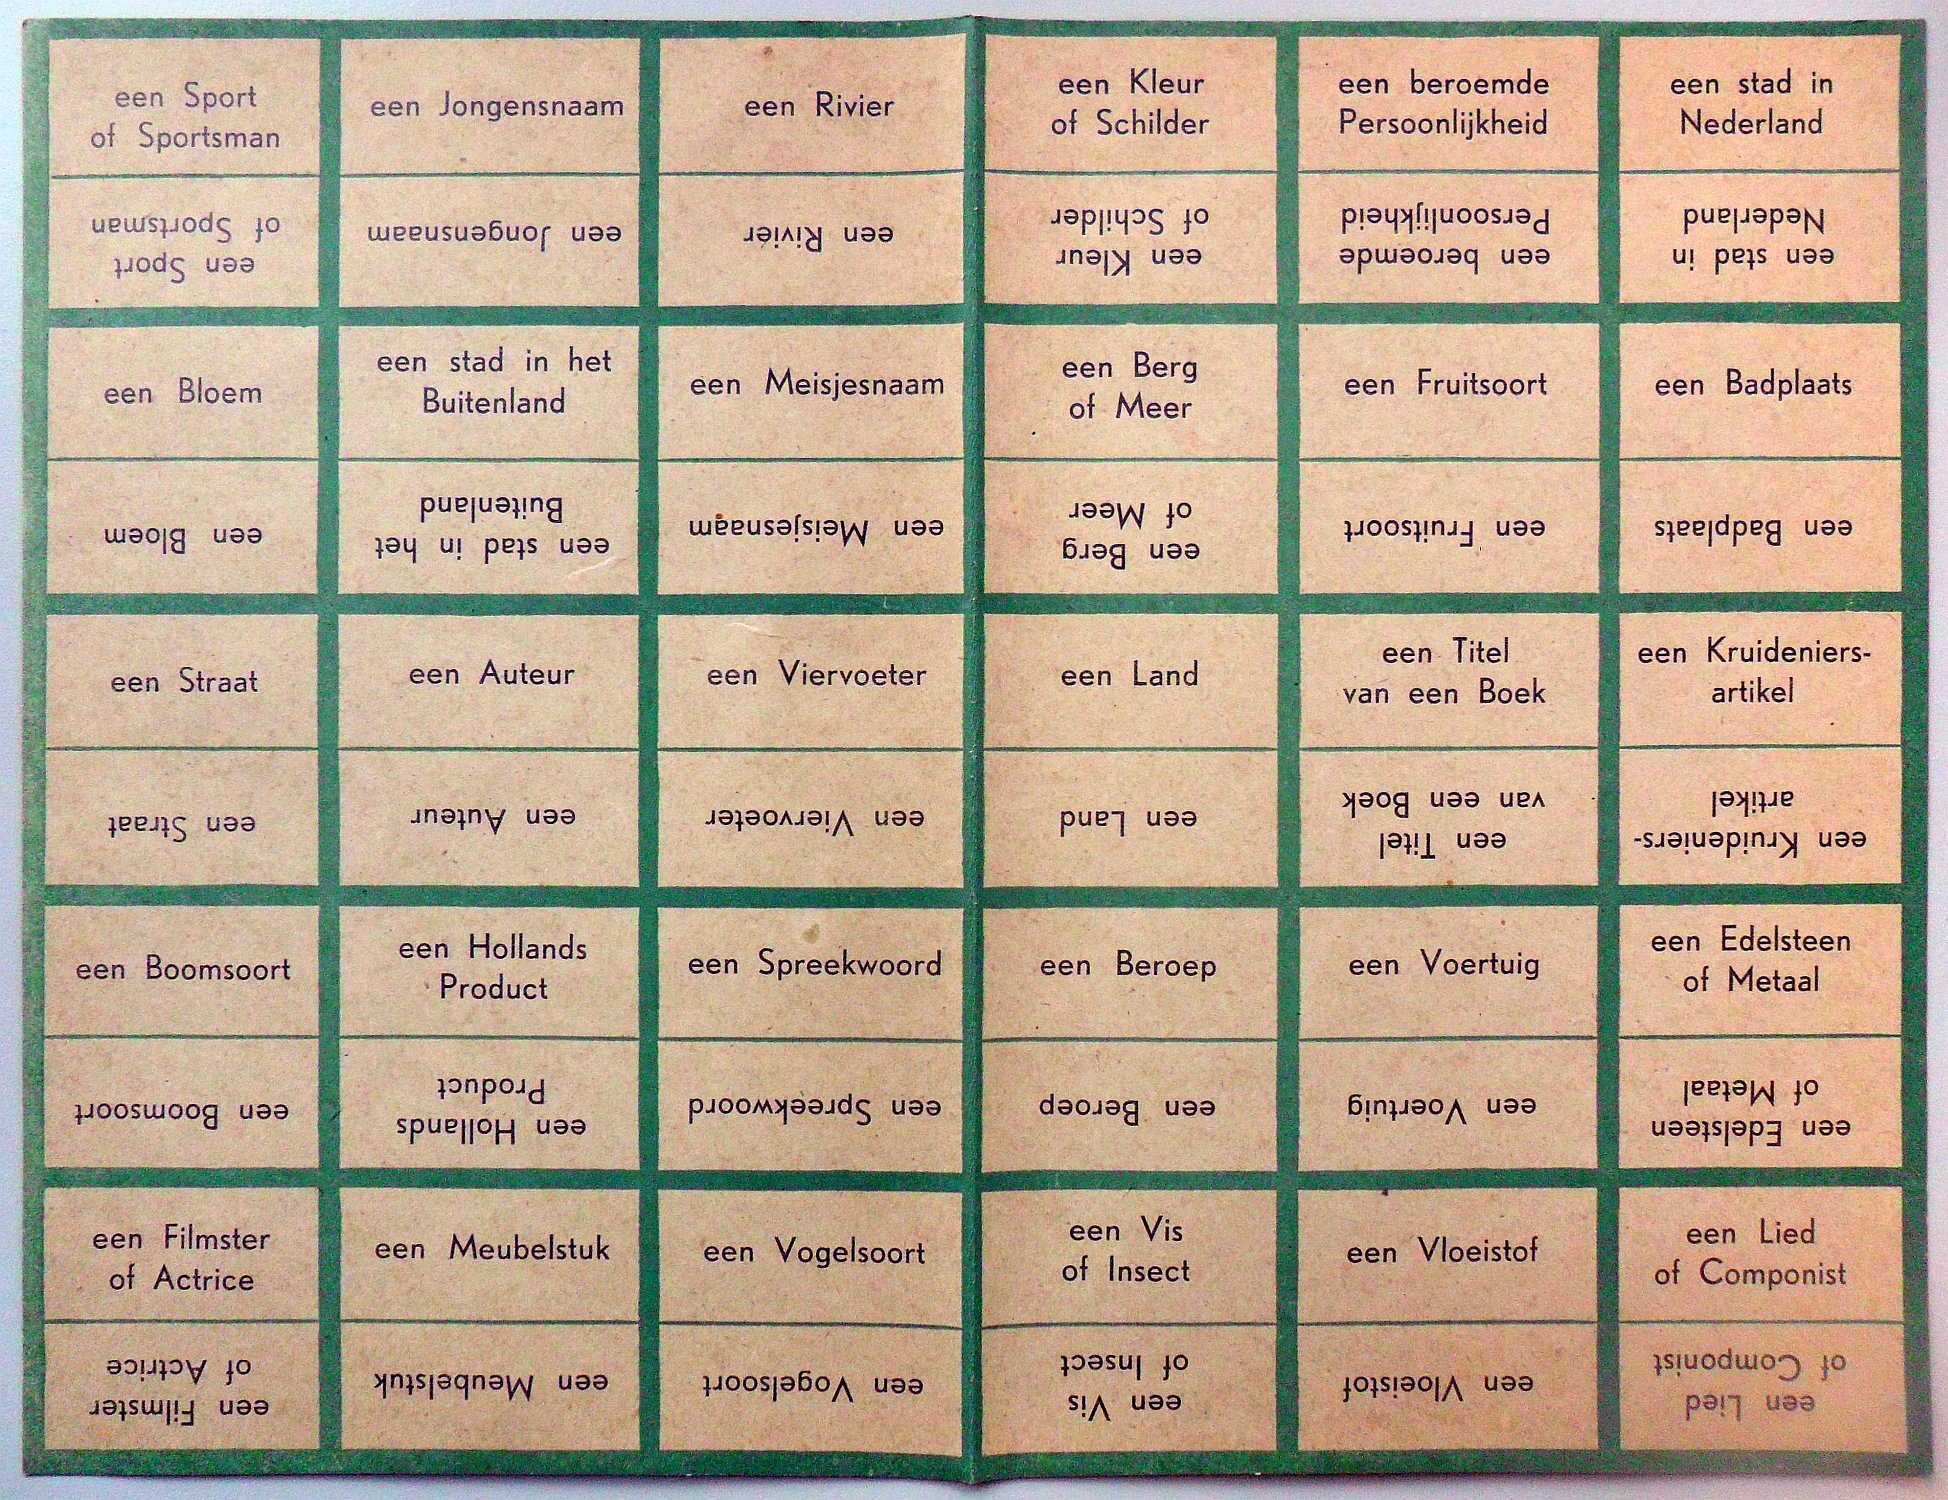 een Sport
of Sportsman
een Sport
of Sportsman
een Jongensnaam
een Jongensnaam
een Rivier
een Rivier
een Kleur
of Schilder
een Kleur
of Schilder
een beroemde
Persoonlijkheid
een beroemde
Persoonlijkheid
een stad in
Nederland
een stad in
Nederland
een Bloem
een Bloem
een stad in het
Buitenland
een stad in het
Buitenland
een Meisjesnaam
een Meisjesnaam
een Berg
of Meer
een Berg
of Meer
een Fruitsoort
een Fruitsoort
een Badplaats
een Badplaats
een Straat
een Straat
een Auteur
een Auteur
een Viervoeter
een Viervoeter
een Land
een Land
een Titel
van een Boek
een Titel
van een Boek
een Kruideniers-
artikel
een Kruideniers-
artikel
een Boomsoort
een Boomsoort
een Hollands
Product
een Hollands
Product
een Spreekwoord
een Spreekwoord
een Beroep
een Beroep
een Voertuig
een Voertuig
een Edelsteen
of Metaal
een Edelsteen
of Metaal
een Filmster
of Actrice
een Filmster
of Actrice
een Meubelstuk
een Meubelstuk
een Vogelsoort
een Vogelsoort
een Vis
of Insect
een Vis
of Insect
een Vloeistof
een Vloeistof
een Lied
of Componist
een Lied
of Componist